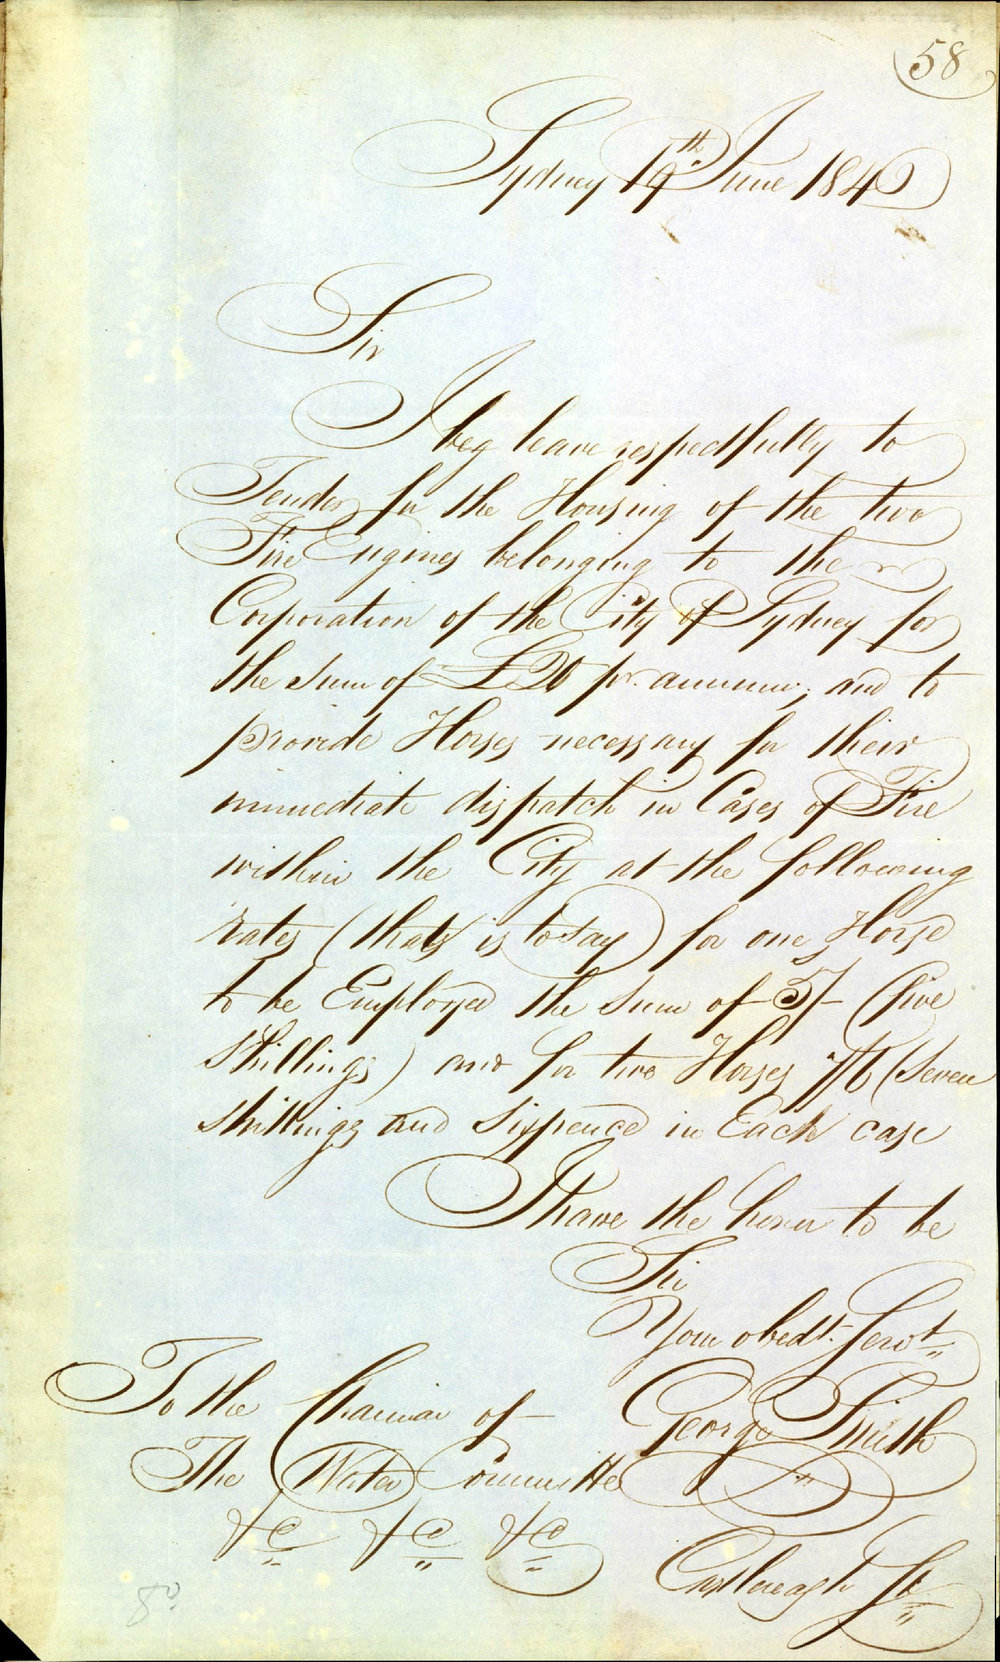 58
Sydney 19th June 184
Sir
I beg leave respectfully to
Tender for the Housing of the two
Fire Engines belonging to the
Corporation of the City of Sydney for
the Sum of £20 pr. annum; and to
provide Horses necessary for their
immediate dispatch in Cases of Fire
within the City at the following
rates (that is to say) for one Horse
to be Employed the sum of 5/- (five
Shillings) and for two Horses 7/6 (Seven
shillings and Sixpence in Each case
I have the honor to be
Sir
Your obedt. Servt.
To the Chairman of
George Smith
The Water Committee
&c &c &c
Castlereagh St